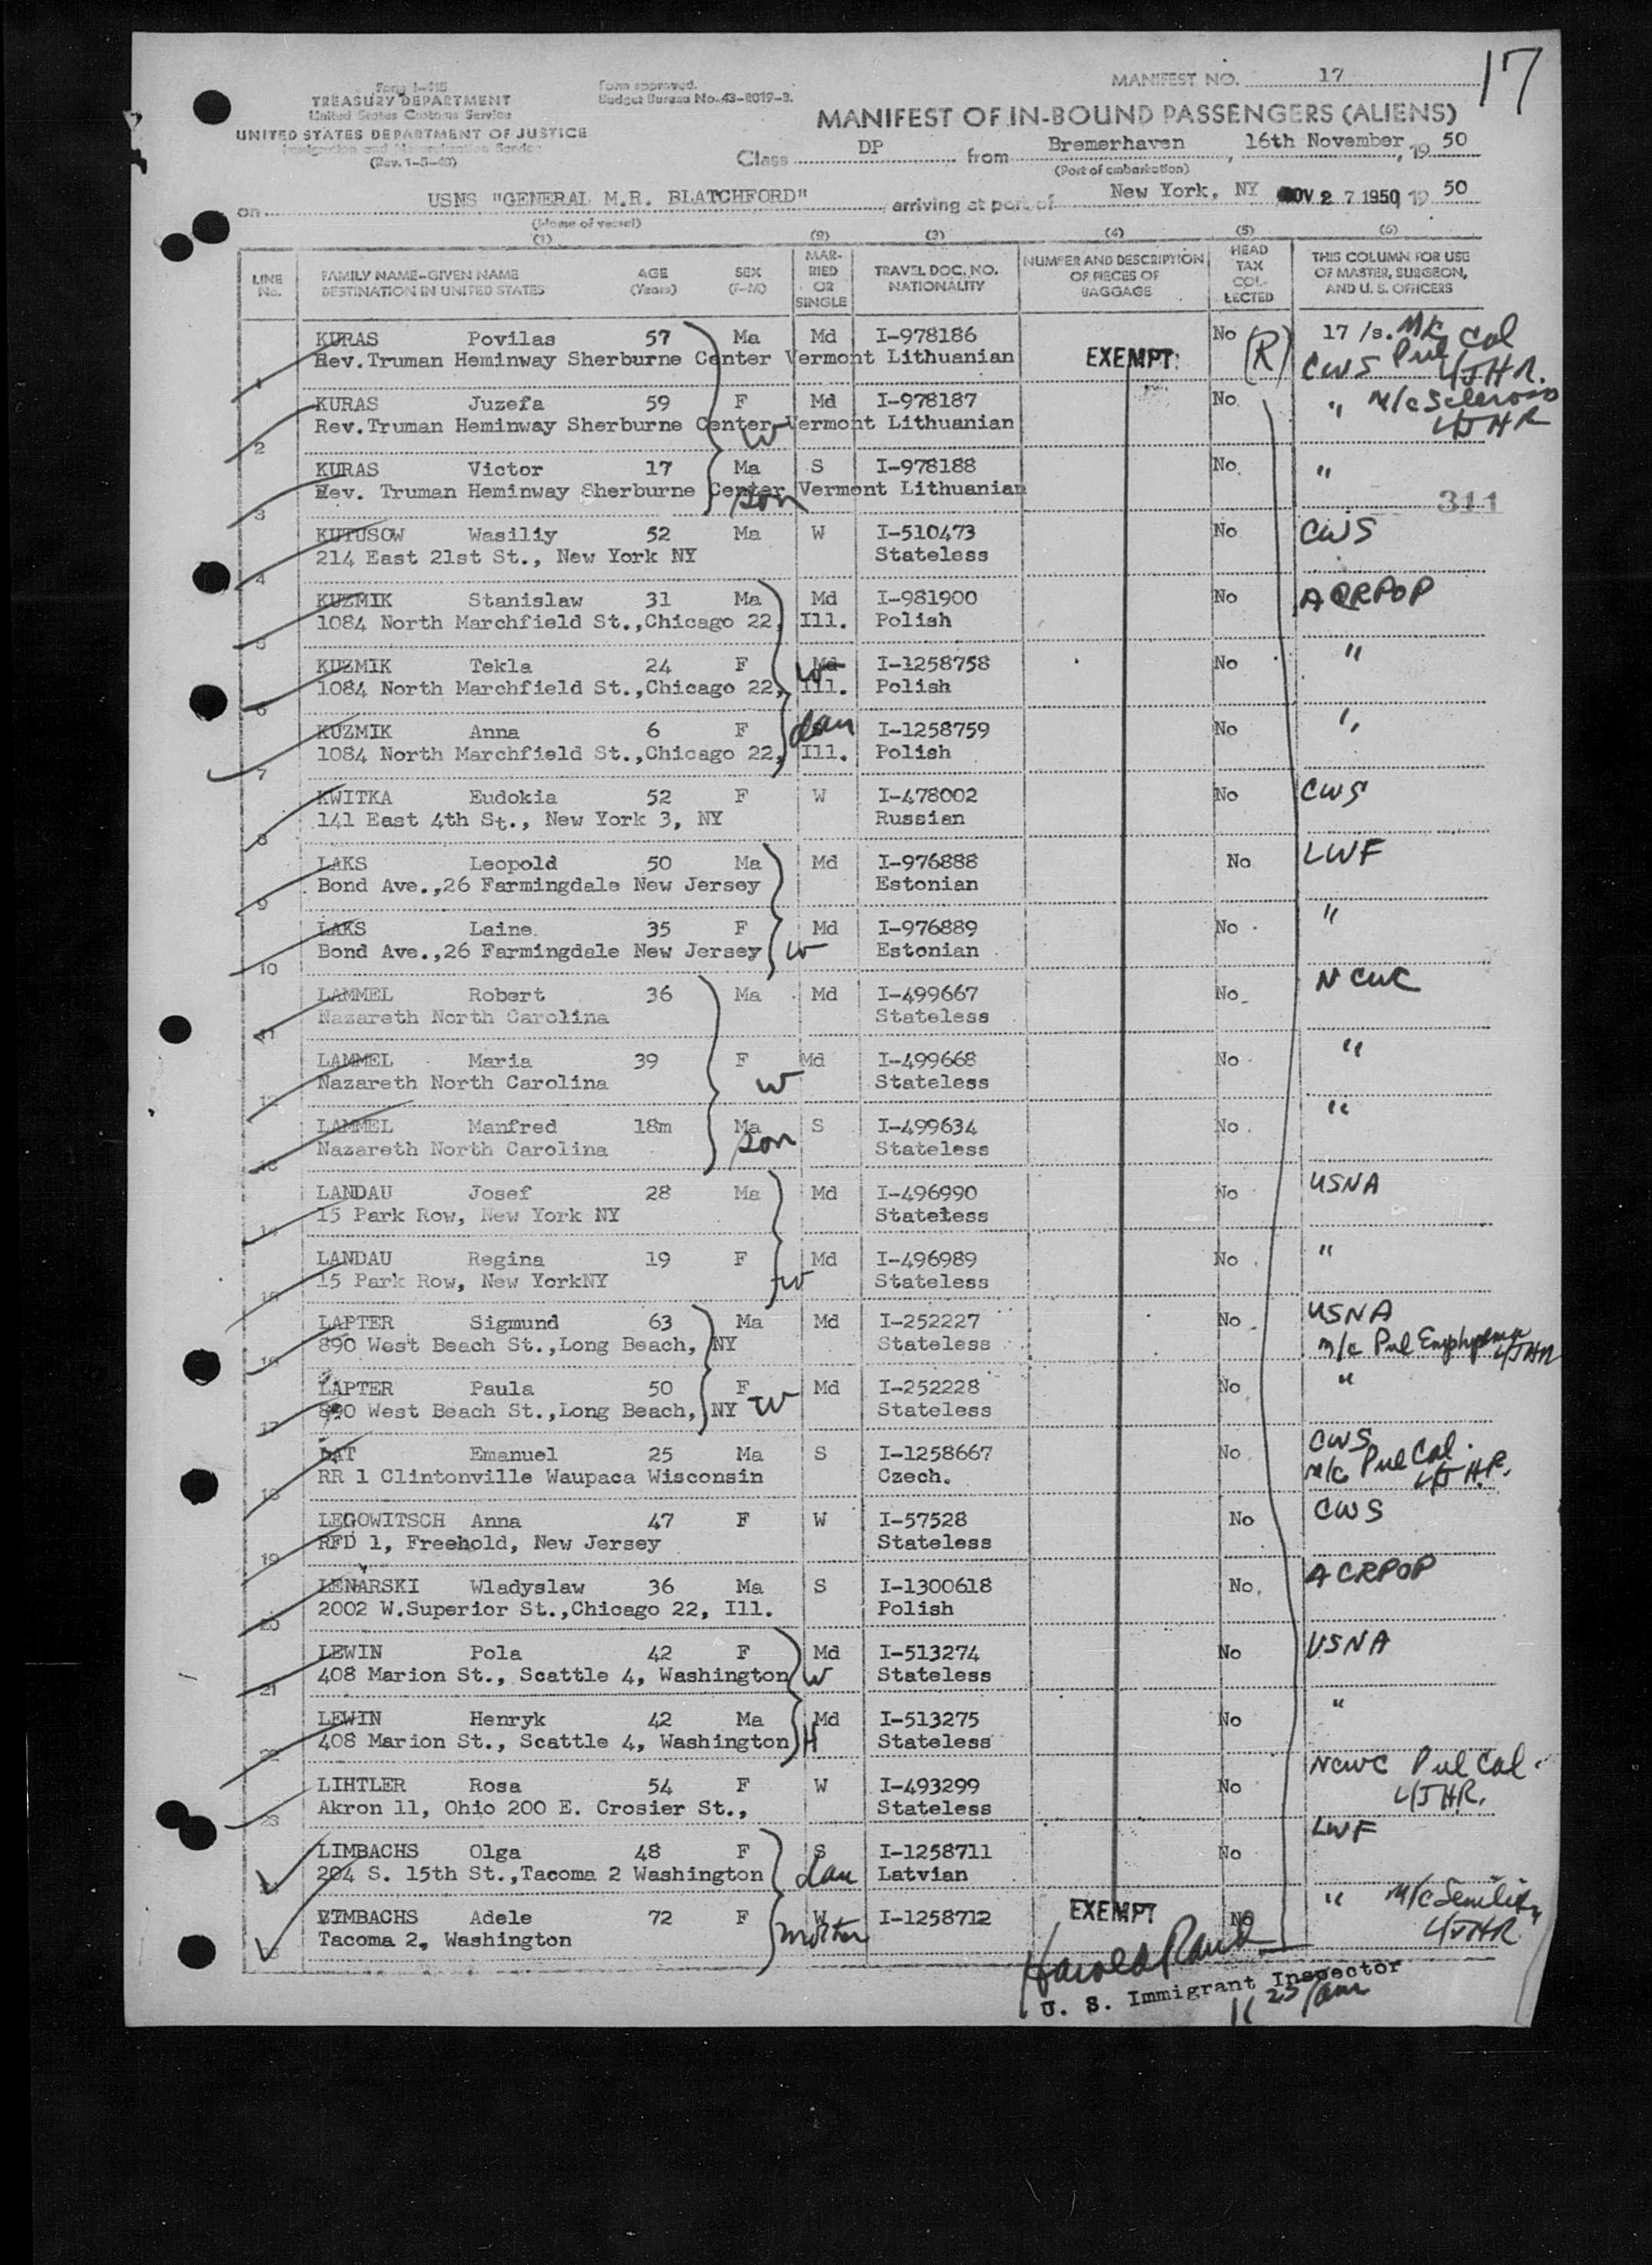 MANIFEST NO. 17
17
Form I-415
TREASURY DEPARTMENT
United States Customs Service
UNITED STATES DEPARTMENT OF JUSTICE
Immigration and Naturalization Service
Form approved.
Budget Bureau No. 43-R019-3.
MANIFEST OF IN-BOUND PASSENGERS (ALIENS)
Class DP from Bremerhaven, 16th November, 19 50
(Port of embarkation)
on USNS "GENERAL M.R. BLATCHFORD" arriving at port of New York, NY NOV 27 1950, 19 50
(Name of vessel)
(1) (2) (3) (4) (5) (6)
LINE No.
FAMILY NAME-GIVEN NAME
DESTINATION IN UNITED STATES
AGE (Years)
SEX (F-M)
MARRIED OR SINGLE
TRAVEL DOC. NO.
NATIONALITY
NUMBER AND DESCRIPTION OF PIECES OF BAGGAGE
HEAD TAX COLLECTED
THIS COLUMN FOR USE OF MASTER, SURGEON, AND U. S. OFFICERS
1 KURAS Povilas 57 Ma Md I-978186 No (R) 17 /s. Pul Cal
Rev.Truman Heminway Sherburne Center Vermont Lithuanian EXEMPT CWS L/JHR.
2 KURAS Juzefa 59 F Md I-978187 No " M/c Sclerosis
Rev.Truman Heminway Sherburne Center W Vermont Lithuanian L/JHR
3 KURAS Victor 17 Ma S I-978188 No. "
Rev. Truman Heminway Sherburne Center son Vermont Lithuanian 311
4 KUTUSOW Wasiliy 52 Ma W I-510473 No CWS
214 East 21st St., New York NY Stateless
5 KUZMIK Stanislaw 31 Ma Md I-981900 No ACRPOP
1084 North Marchfield St.,Chicago 22, Ill. Polish
6 KUZMIK Tekla 24 F Md W I-1258758 No "
1084 North Marchfield St.,Chicago 22, Ill. Polish
7 KUZMIK Anna 6 F dau I-1258759 No "
1084 North Marchfield St.,Chicago 22, Ill. Polish
8 KWITKA Eudokia 52 F W I-478002 No CWS
141 East 4th St., New York 3, NY Russian
9 LAKS Leopold 50 Ma Md I-976888 No LWF
Bond Ave.,26 Farmingdale New Jersey Estonian
10 LAKS Laine 35 F Md I-976889 No "
Bond Ave.,26 Farmingdale New Jersey W Estonian
11 LAMMEL Robert 36 Ma Md I-499667 No NCWC
Nazareth North Carolina Stateless
12 LAMMEL Maria 39 F Md I-499668 No "
Nazareth North Carolina W Stateless
13 LAMMEL Manfred 18m Ma S I-499634 No "
Nazareth North Carolina son Stateless
14 LANDAU Josef 28 Ma Md I-496990 No USNA
15 Park Row, New York NY Stateless
15 LANDAU Regina 19 F Md I-496989 No "
15 Park Row, New YorkNY W Stateless
16 LAPTER Sigmund 63 Ma Md I-252227 No USNA
890 West Beach St.,Long Beach, NY Stateless M/c Pul Emphysema L/JHR
17 LAPTER Paula 50 F Md I-252228 No "
890 West Beach St.,Long Beach, NY W Stateless
18 LAT Emanuel 25 Ma S I-1258667 No CWS
RR 1 Clintonville Waupaca Wisconsin Czech. M/c Pul Cal. L/JHR.
19 LEGOWITSCH Anna 47 F W I-57528 No CWS
RFD 1, Freehold, New Jersey Stateless
20 LENARSKI Wladyslaw 36 Ma S I-1300618 No. ACRPOP
2002 W.Superior St.,Chicago 22, Ill. Polish
21 LEWIN Pola 42 F Md I-513274 No USNA
408 Marion St., Scattle 4, Washington W Stateless
22 LEWIN Henryk 42 Ma Md I-513275 No "
408 Marion St., Scattle 4, Washington H Stateless
23 LIHTLER Rosa 54 F W I-493299 No NCWC Pul Cal.
Akron 11, Ohio 200 E. Crosier St., Stateless L/JHR.
LIMBACHS Olga 48 F S I-1258711 No LWF
204 S. 15th St.,Tacoma 2 Washington dau Latvian
LIMBACHS Adele 72 F W I-1258712 EXEMPT No " M/c Senility
Tacoma 2, Washington mother L/JHR
Harold Rauch
U. S. Immigrant Inspector